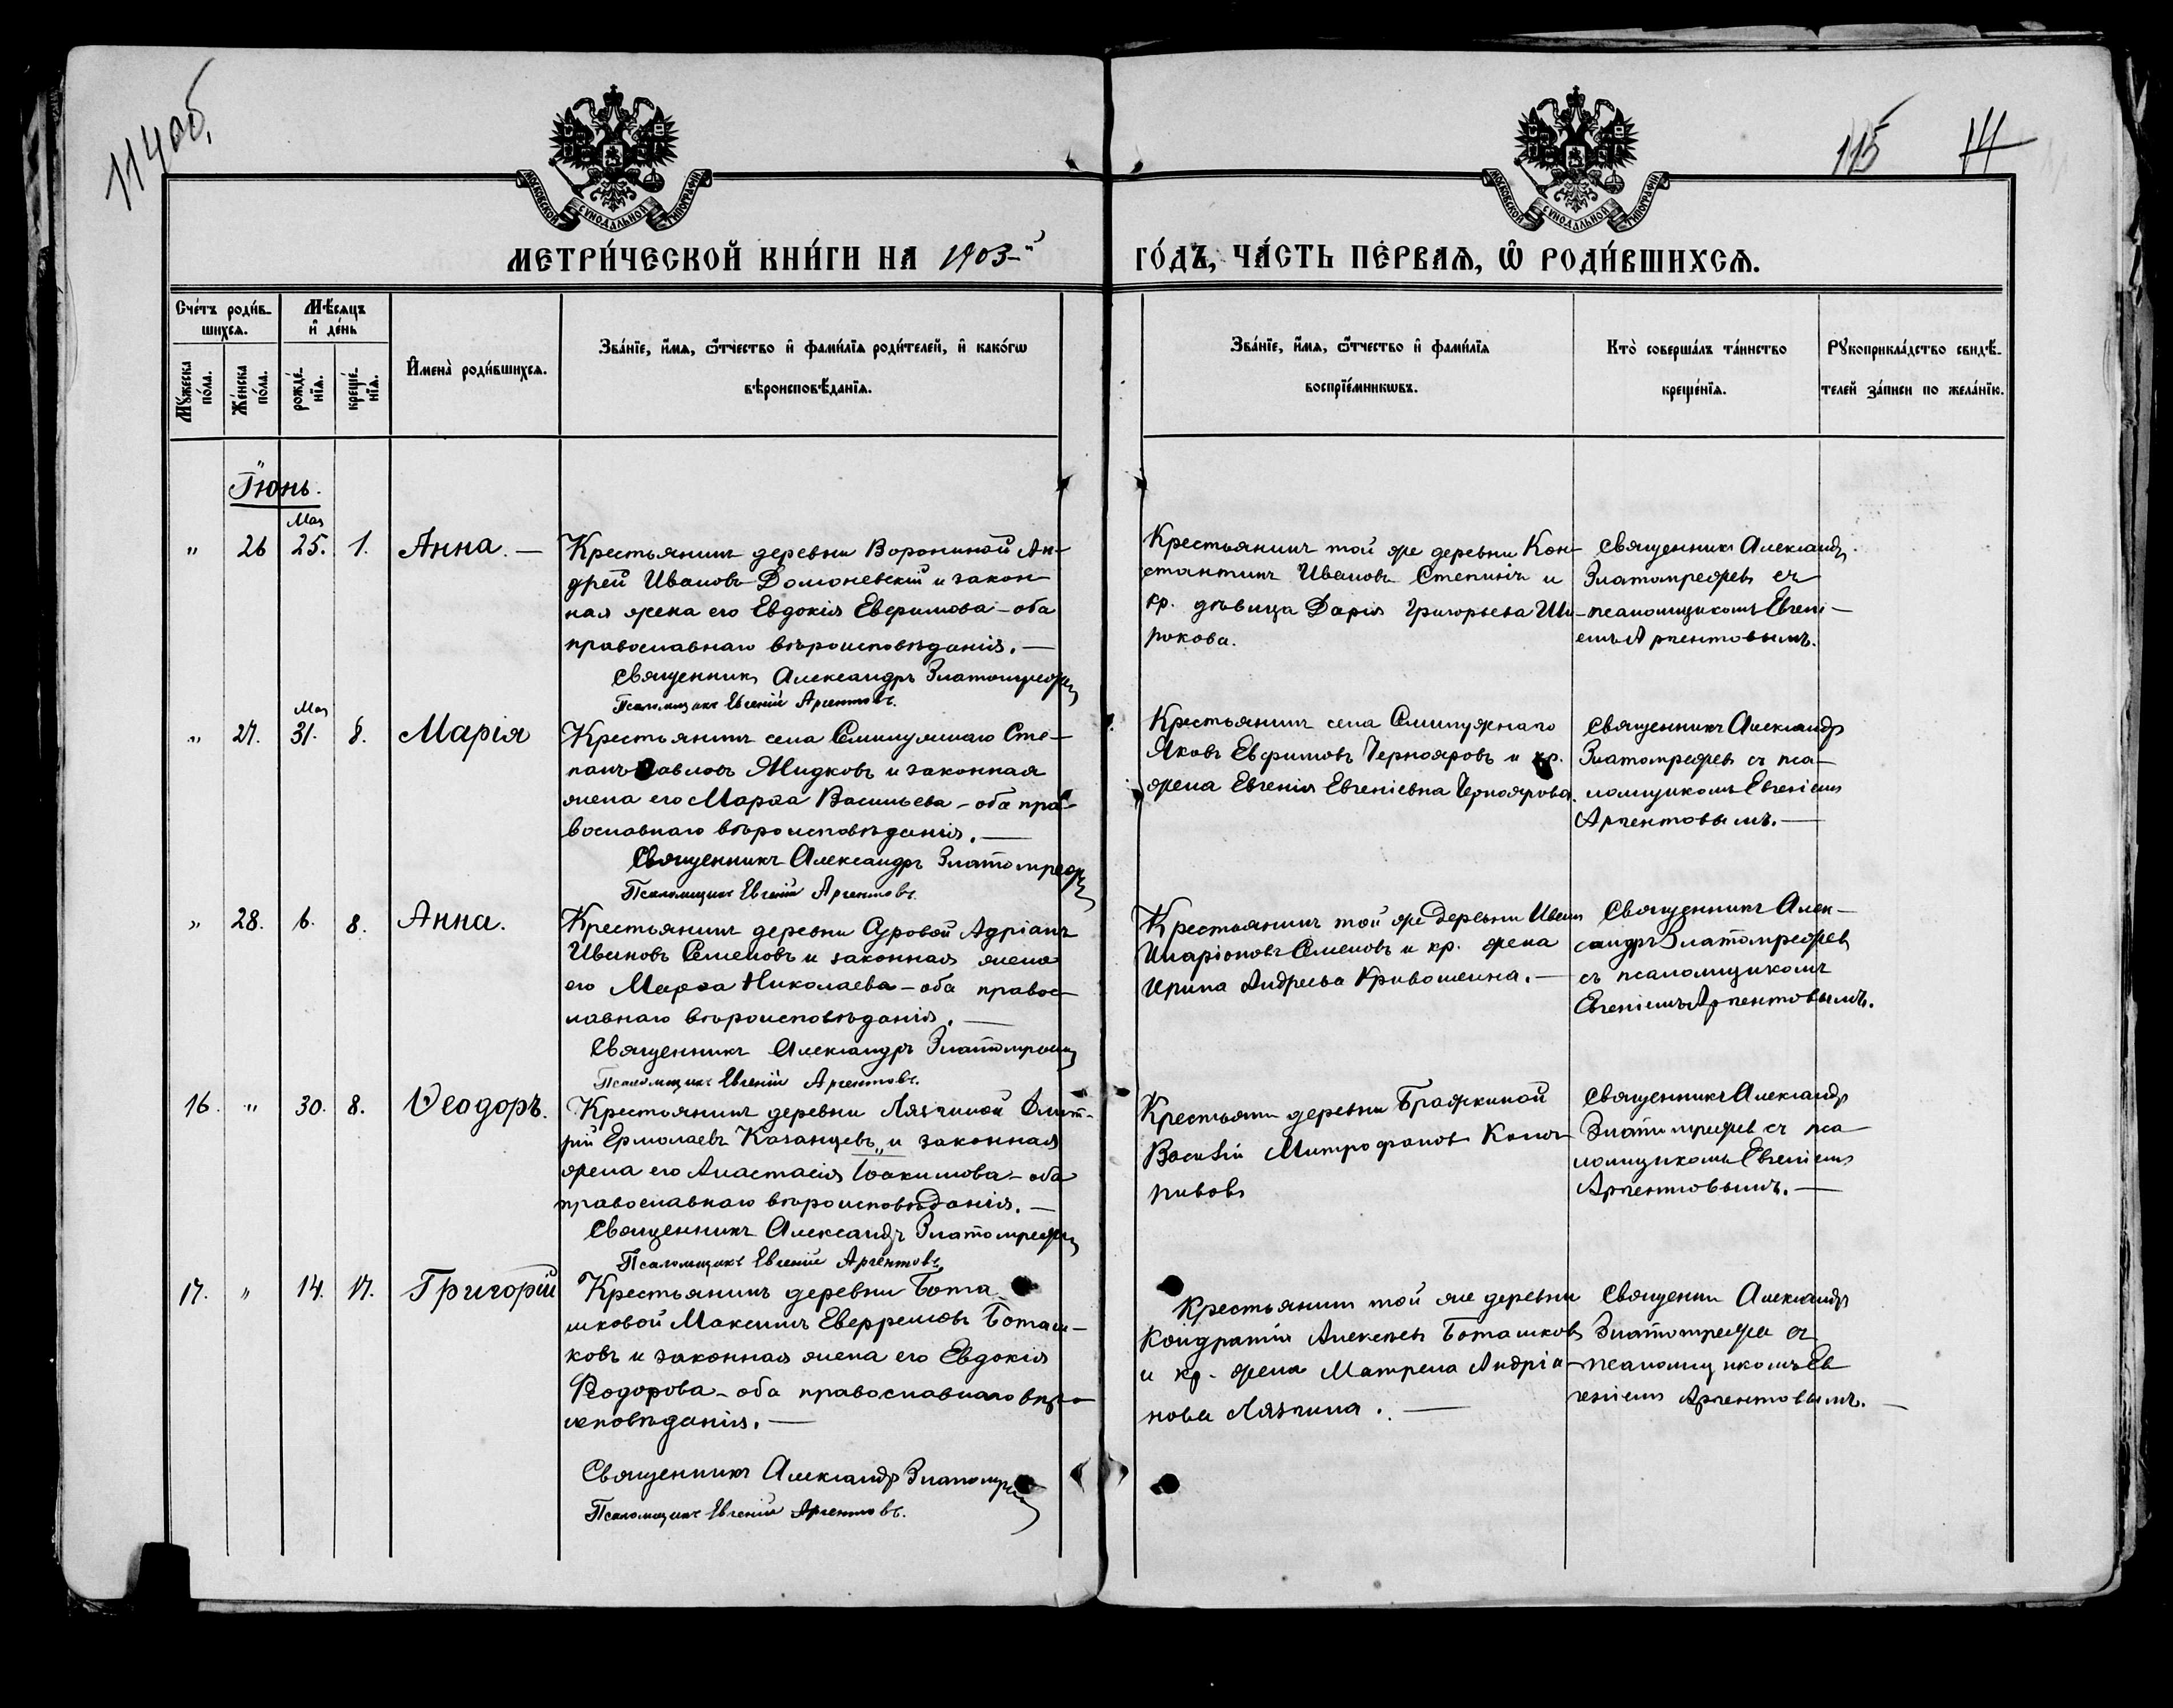 114об.
115 14
МОСКОВСКОЙ СѴНОДАЛЬНОЙ ТИПОГРАФІИ
МОСКОВСКОЙ СѴНОДАЛЬНОЙ ТИПОГРАФІИ
МЕТРИ́ЧЕСКОЙ КНИ́ГИ НА 1903-й ГО́ДЪ, ЧА́СТЬ ПЕ́РВАЯ, Ѡ РОДИ́ВШИХСЯ.
Сче́тъ роди́в-
шихся.
Мꙋжеска по́ла.
Же́нска по́ла.
Мѣ́сяцъ
и́ де́нь
рожде́-
нїя.
креще́-
нїя.
И҆мена̀ роди́вшихся.
Зва́нїе, и҆́мя, ѻ҆́тчество и҆ фами́лїя роди́телей, и҆ како́гѡ
вѣроисповѣ́данїя.
Зва́нїе, и҆́мя, ѻ҆́тчество и҆ фами́лїя
воспрїе́мникѡвъ.
Кто̀ соверша́лъ та́инство
креще́нїя.
Рꙋкоприкла́дство свидѣ́-
телей за́писи по жела́нїю.
Іюнь.
Мая
" 26 25. 1. Анна. —
Крестьянинъ деревни Ворониной Ан-
дрей Ивановъ Домоневскій и закон
ная жена его Евдокія Евфимова - оба
православнаго вѣроисповѣданія. —
Священникъ Александръ Златомрежев
Псаломщикъ Евгеній Аргентовъ.
Крестьянинъ той же деревни Кон-
стантинъ Ивановъ Степинъ и
кр. дѣвица Дарія Григорьева Ши-
рокова.
Священникъ Александръ
Златомрежевъ съ
псаломщикомъ Евгені-
емъ Аргентовымъ.
Мая
" 27. 31. 8. Марія
Крестьянинъ села Семилужнаго Сте-
панъ Павловъ Жидковъ и законная
жена его Марѳа Васильева - оба пра-
вославнаго вѣроисповѣданія. —
Священникъ Александръ Златомрежев
Псаломщикъ Евгеній Аргентовъ.
Крестьянинъ села Семилужнаго
Яковъ Евфимовъ Чернояровъ и кр.
жена Евгенія Евгеніевна Черноярова.
Священникъ Александръ
Златомрежевъ съ пса-
ломщикомъ Евгеніемъ
Аргентовымъ. —
" 28. 6. 8. Анна.
Крестьянинъ деревни Суровой Адріанъ
Ивановъ Семеновъ и законная жена
его Марѳа Николаева - оба правос-
лавнаго вѣроисповѣданія. —
Священникъ Александръ Златомрежев
Псаломщикъ Евгеній Аргентовъ.
Крестьянинъ той же деревни Иванъ
Иларіоновъ Семеновъ и кр. жена
Ирина Андреева Кривошеина. —
Священникъ Алек-
сандръ Златомрежевъ
съ псаломщикомъ
Евгеніемъ Аргентовымъ.
16. " 30. 8. Ѳеодоръ.
Крестьянинъ деревни Лязгиной Дмит-
рій Ермолаевъ Казанцевъ и законная
жена его Анастасія Іоакимова - оба
православнаго вѣроисповѣданія. —
Священникъ Александръ Златомрежев
Псаломщикъ Евгеній Аргентовъ.
Крестьянин деревни Бражкиной
Василій Митрофанов
Священникъ Александръ
Златомрежев съ пса-
ломщикомъ Евгеніемъ
Аргентовымъ. —
17. " 14. 17. Григорій
Крестьянинъ деревни Бота
шковой Максимъ Евфремовъ Боташ-
ковъ и законная жена его Евдокія
Ѳеодорова - оба православнаго вѣро-
исповѣданія. —
Священникъ Александръ Златомрежев
Псаломщикъ Евгеній Аргентовъ.
Крестьянинъ той же деревни
Кондратій Алексѣевъ Боташковъ
и кр. жена Матрена Андріа-
нова Лязгина. —
Священник Александръ
Златомрежев съ
псаломщикомъ Ев
геніемъ Аргентовымъ. —